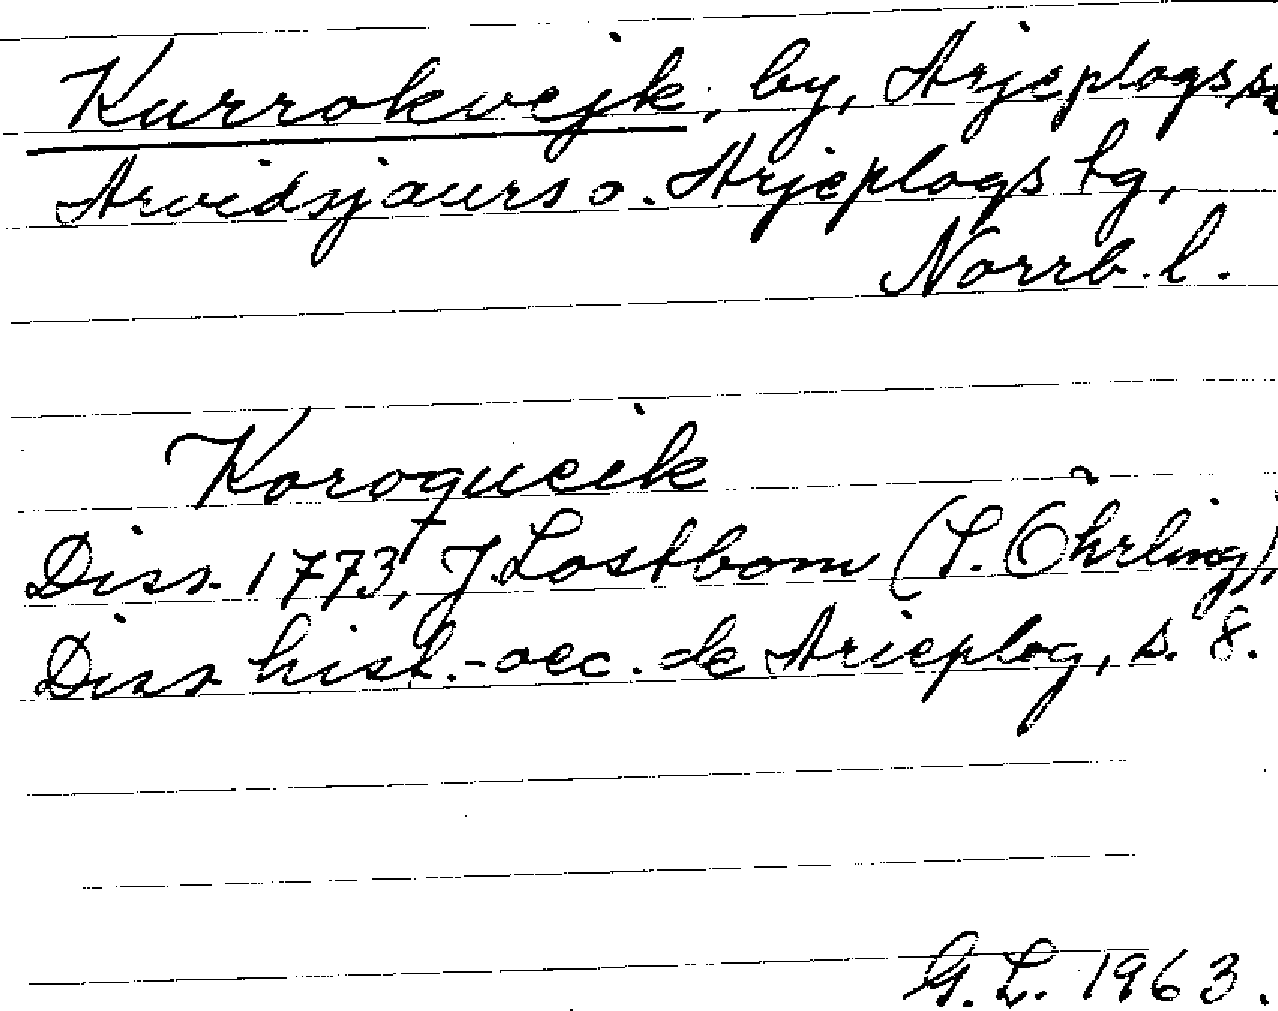 Kurrokvejk, by, Arjeplogs sn
Arvidsjaurs o. Arjeplogs tg,
Norrb. l.
Koroqueik
Diss. 1773, J. Lostbom (P. Öhrling),
Diss. hist.-oec. de Arieplog, s. 8.
G. L. 1963.